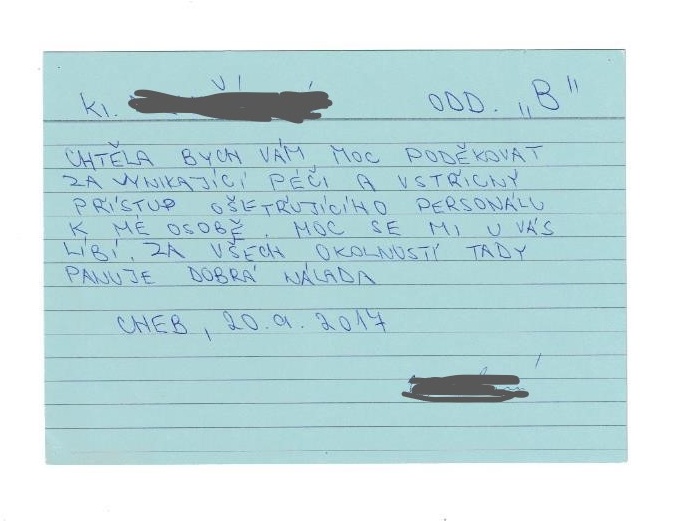 KL. ODD. „B"
CHTĚLA BYCH VÁM MOC PODĚKOVAT
ZA VYNIKAJÍCÍ PÉČI A VSTŘÍCNÝ
PŘÍSTUP OŠETŘUJÍCÍHO PERSONÁLU
K MÉ OSOBĚ. MOC SE MI U VÁS
LÍBÍ. ZA VŠECH OKOLNOSTÍ TADY
PANUJE DOBRÁ NÁLADA
CHEB, 20.9.2017